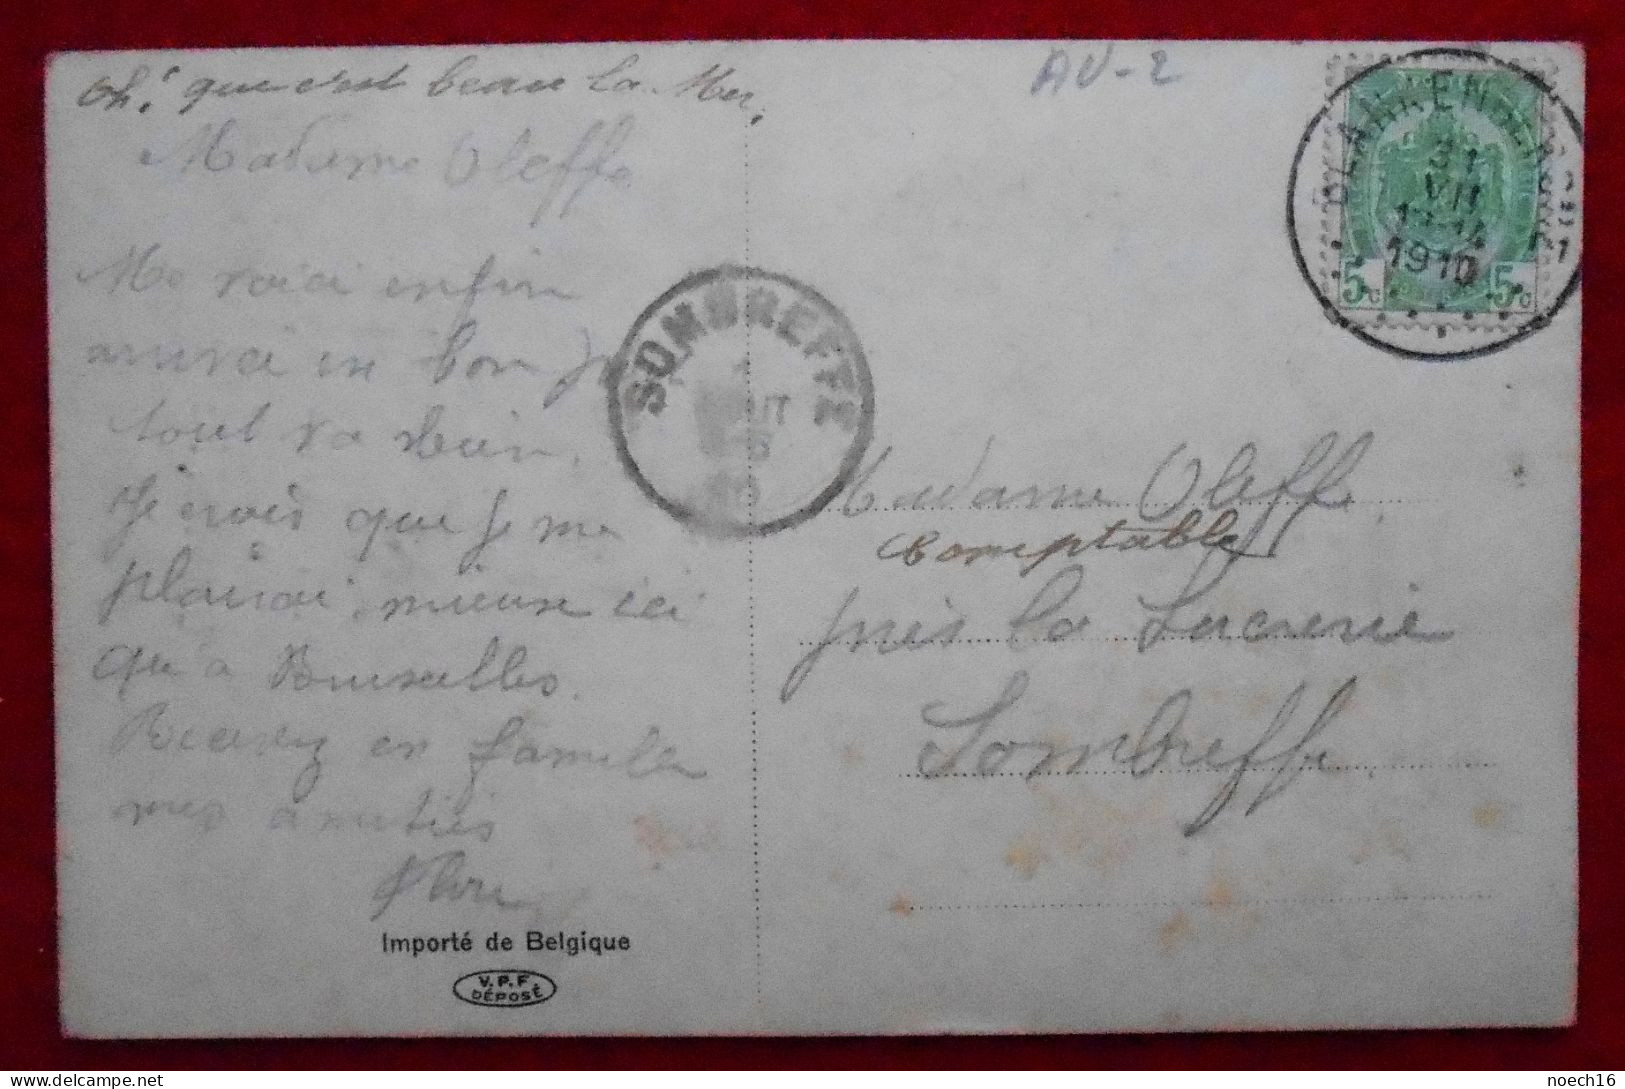 Oh! que c'est beau la Mer,
AU-2
Madame Oleffe
Me voici enfin
arrivée en bon
tout va bien,
Je crois que je me
plairai mieux ici
qu'à Bruxelles.
Recevez en famille
mes amitiés
Importé de Belgique
V.P.F.
DÉPOSÉ
SOMBREFFE
1
BLANKENBERGHE
31
VII
13-14
1910
5c 5c
Madame Oleffe
Comptable
près la Sucrerie
Sombreffe
noech16